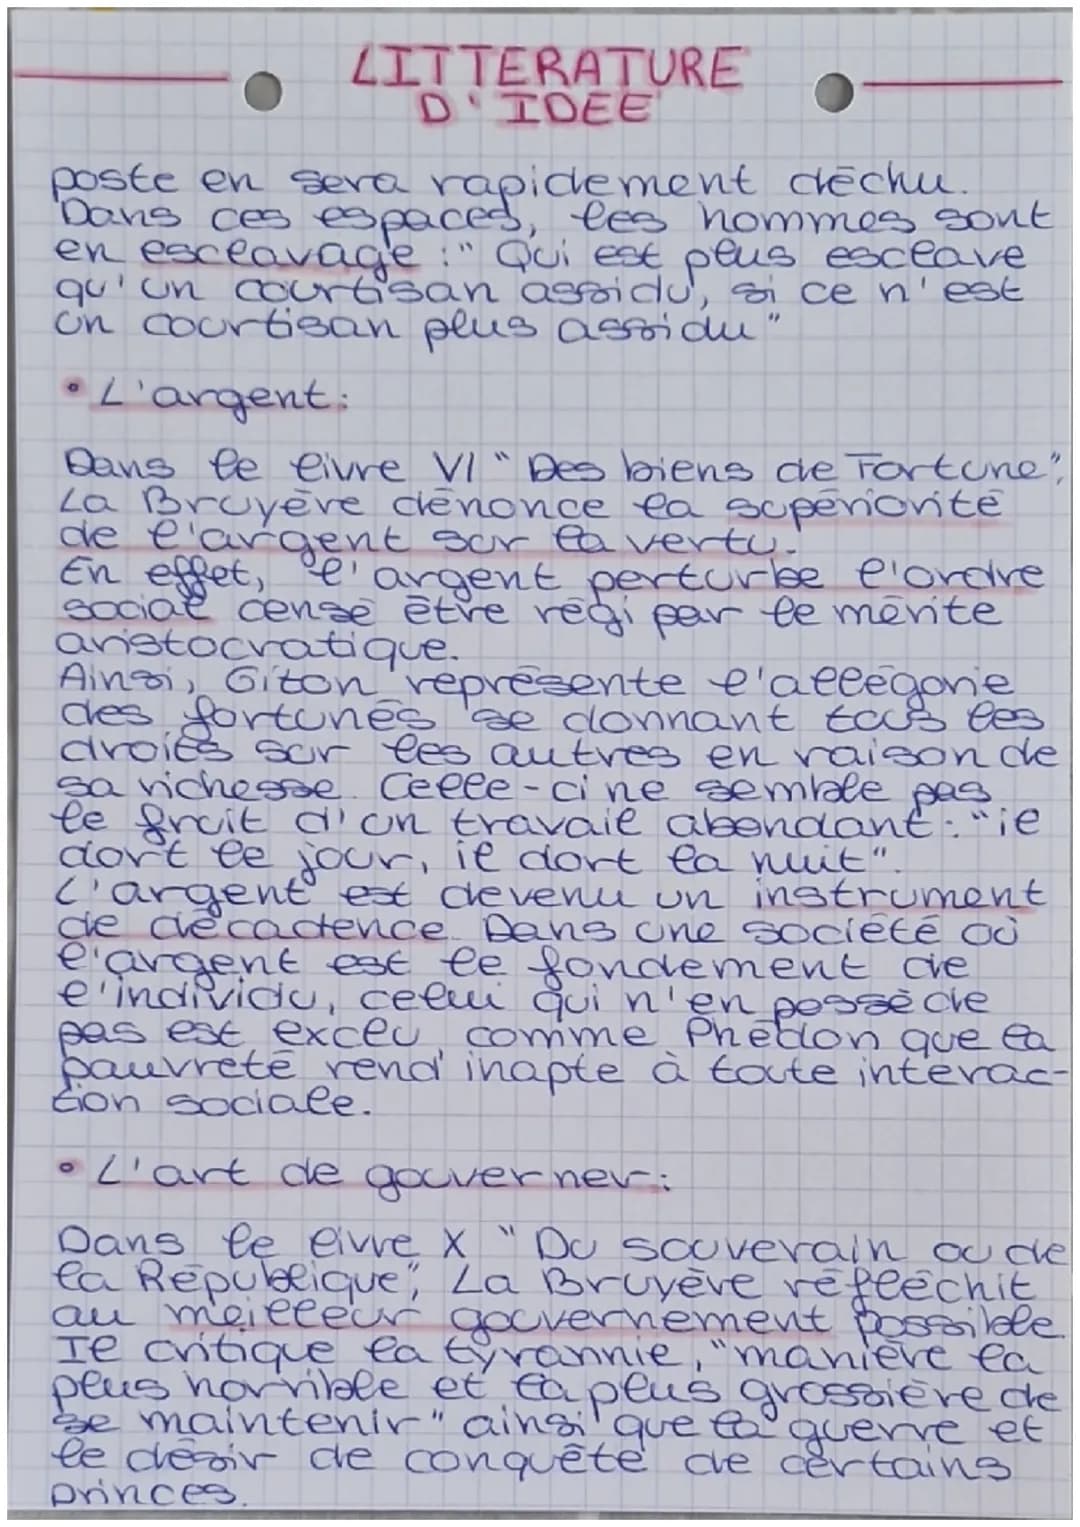 LITTERATURE
D'IDEE
poste en sera rapidement déchu.
Dans ces espaces, les hommes sont
en esclavage : " Qui est plus esclave
qu'un courtisan assidu, si ce n'est
un courtisan plus assidu"
• L'argent :
Dans le livre VI " Des biens de Fortune",
La Bruyère dénonce la supériorité
de l'argent sur la vertu.
En effet, l'argent perturbe l'ordre
social censé être régi par le mérite
aristocratique.
Ainsi, Giton représente l'allégorie
des fortunés se donnant tous les
droits sur les autres en raison de
sa richesse. Celle-ci ne semble pas
le fruit d'un travail abondant : "il
dort le jour, il dort la nuit".
L'argent est devenu un instrument
de décadence. Dans une société où
l'argent est le fondement de
l'individu, celui qui n'en possède
pas est exclu, comme Phédon que la
pauvreté rend inapte à toute interac-
tion sociale.
• L'art de gouverner :
Dans le livre X " Du souverain ou de
la République", La Bruyère réfléchit
au meilleur gouvernement possible.
Il critique la tyrannie, "manière la
plus horrible et la plus grossière de
se maintenir" ainsi que la guerre et
le désir de conquête de certains
princes.